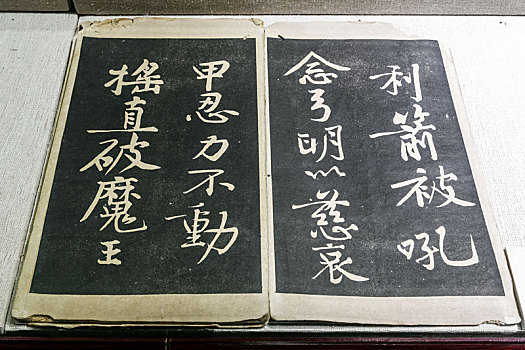 利箭被吼
念弓明以慈哀
甲忍力不動
搖直破魔王